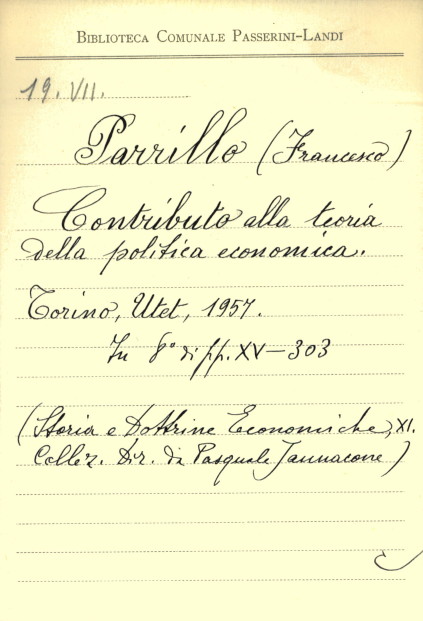 BIBLIOTECA COMUNALE PASSERINI-LANDI
19. VII.
Parrillo (Francesco)
Contributo alla teoria
della politica economica.
Torino, Utet, 1957.
In 8° di pp. XV-303
(Storia e Dottrine Economiche, XI.
Collez. Dir. da Pasquale Jannacone)